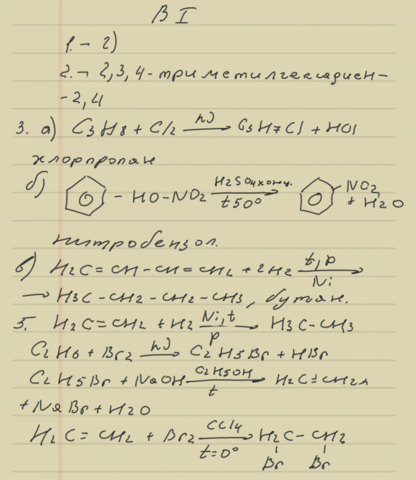 В I
1. – 2)
2. – 2,3,4-триметилгексадиен-
-2,4
3. а) C3H8 + Cl2 —hν→ C3H7Cl + HCl
хлорпропан
б) – HO-NO2 —H2SO4конц., t50°→ NO2 + H2O
нитробензол.
в) H2C=CH-CH=CH2 + 2H2 —t,p, Ni→
→ H3C-CH2-CH2-CH3, бутан.
5. H2C=CH2 + H2 —Ni,t, p→ H3C-CH3
C2H6 + Br2 —hν→ C2H5Br + HBr
C2H5Br + NaOH —C2H5OH, t→ H2C=CH2
+ NaBr + H2O
H2C=CH2 + Br2 —CCl4, t=0°→ H2C-CH2
Br Br